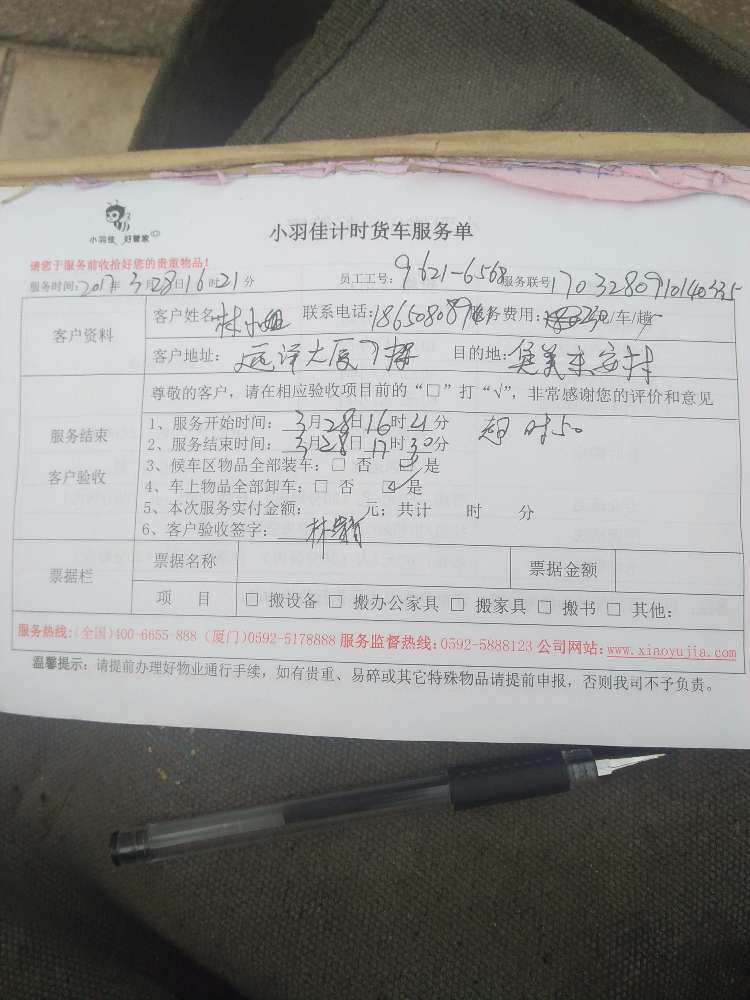 小羽佳 好管家
小羽佳计时货车服务单
请您于服务前收拾好您的贵重物品！
服务时间：2017年3月28日16时21分 员工工号：9621-6568 服务联号1703280910140335
客户资料
客户姓名：林小姐 联系电话：18650808 服务费用：/车/趟
客户地址：远洋大厦7楼 目的地：集美东安村
尊敬的客户，请在相应验收项目前的“□”打“√”，非常感谢您的评价和意见
服务结束
客户验收
1、服务开始时间：3月28日16时21分 超时50
2、服务结束时间：3月28日17时30分
3、候车区物品全部装车：□ 否 ☑ 是
4、车上物品全部卸车：□ 否 ☑ 是
5、本次服务实付金额： 元；共计 时 分
6、客户验收签字：林
票据栏
票据名称 票据金额
项 目 □ 搬设备 □ 搬办公家具 □ 搬家具 □ 搬书 □ 其他：
服务热线：(全国)400-6655-888 (厦门)0592-5178888 服务监督热线：0592-5888123 公司网站：www.xiaoyujia.com
温馨提示：请提前办理好物业通行手续，如有贵重、易碎或其它特殊物品请提前申报，否则我司不予负责。